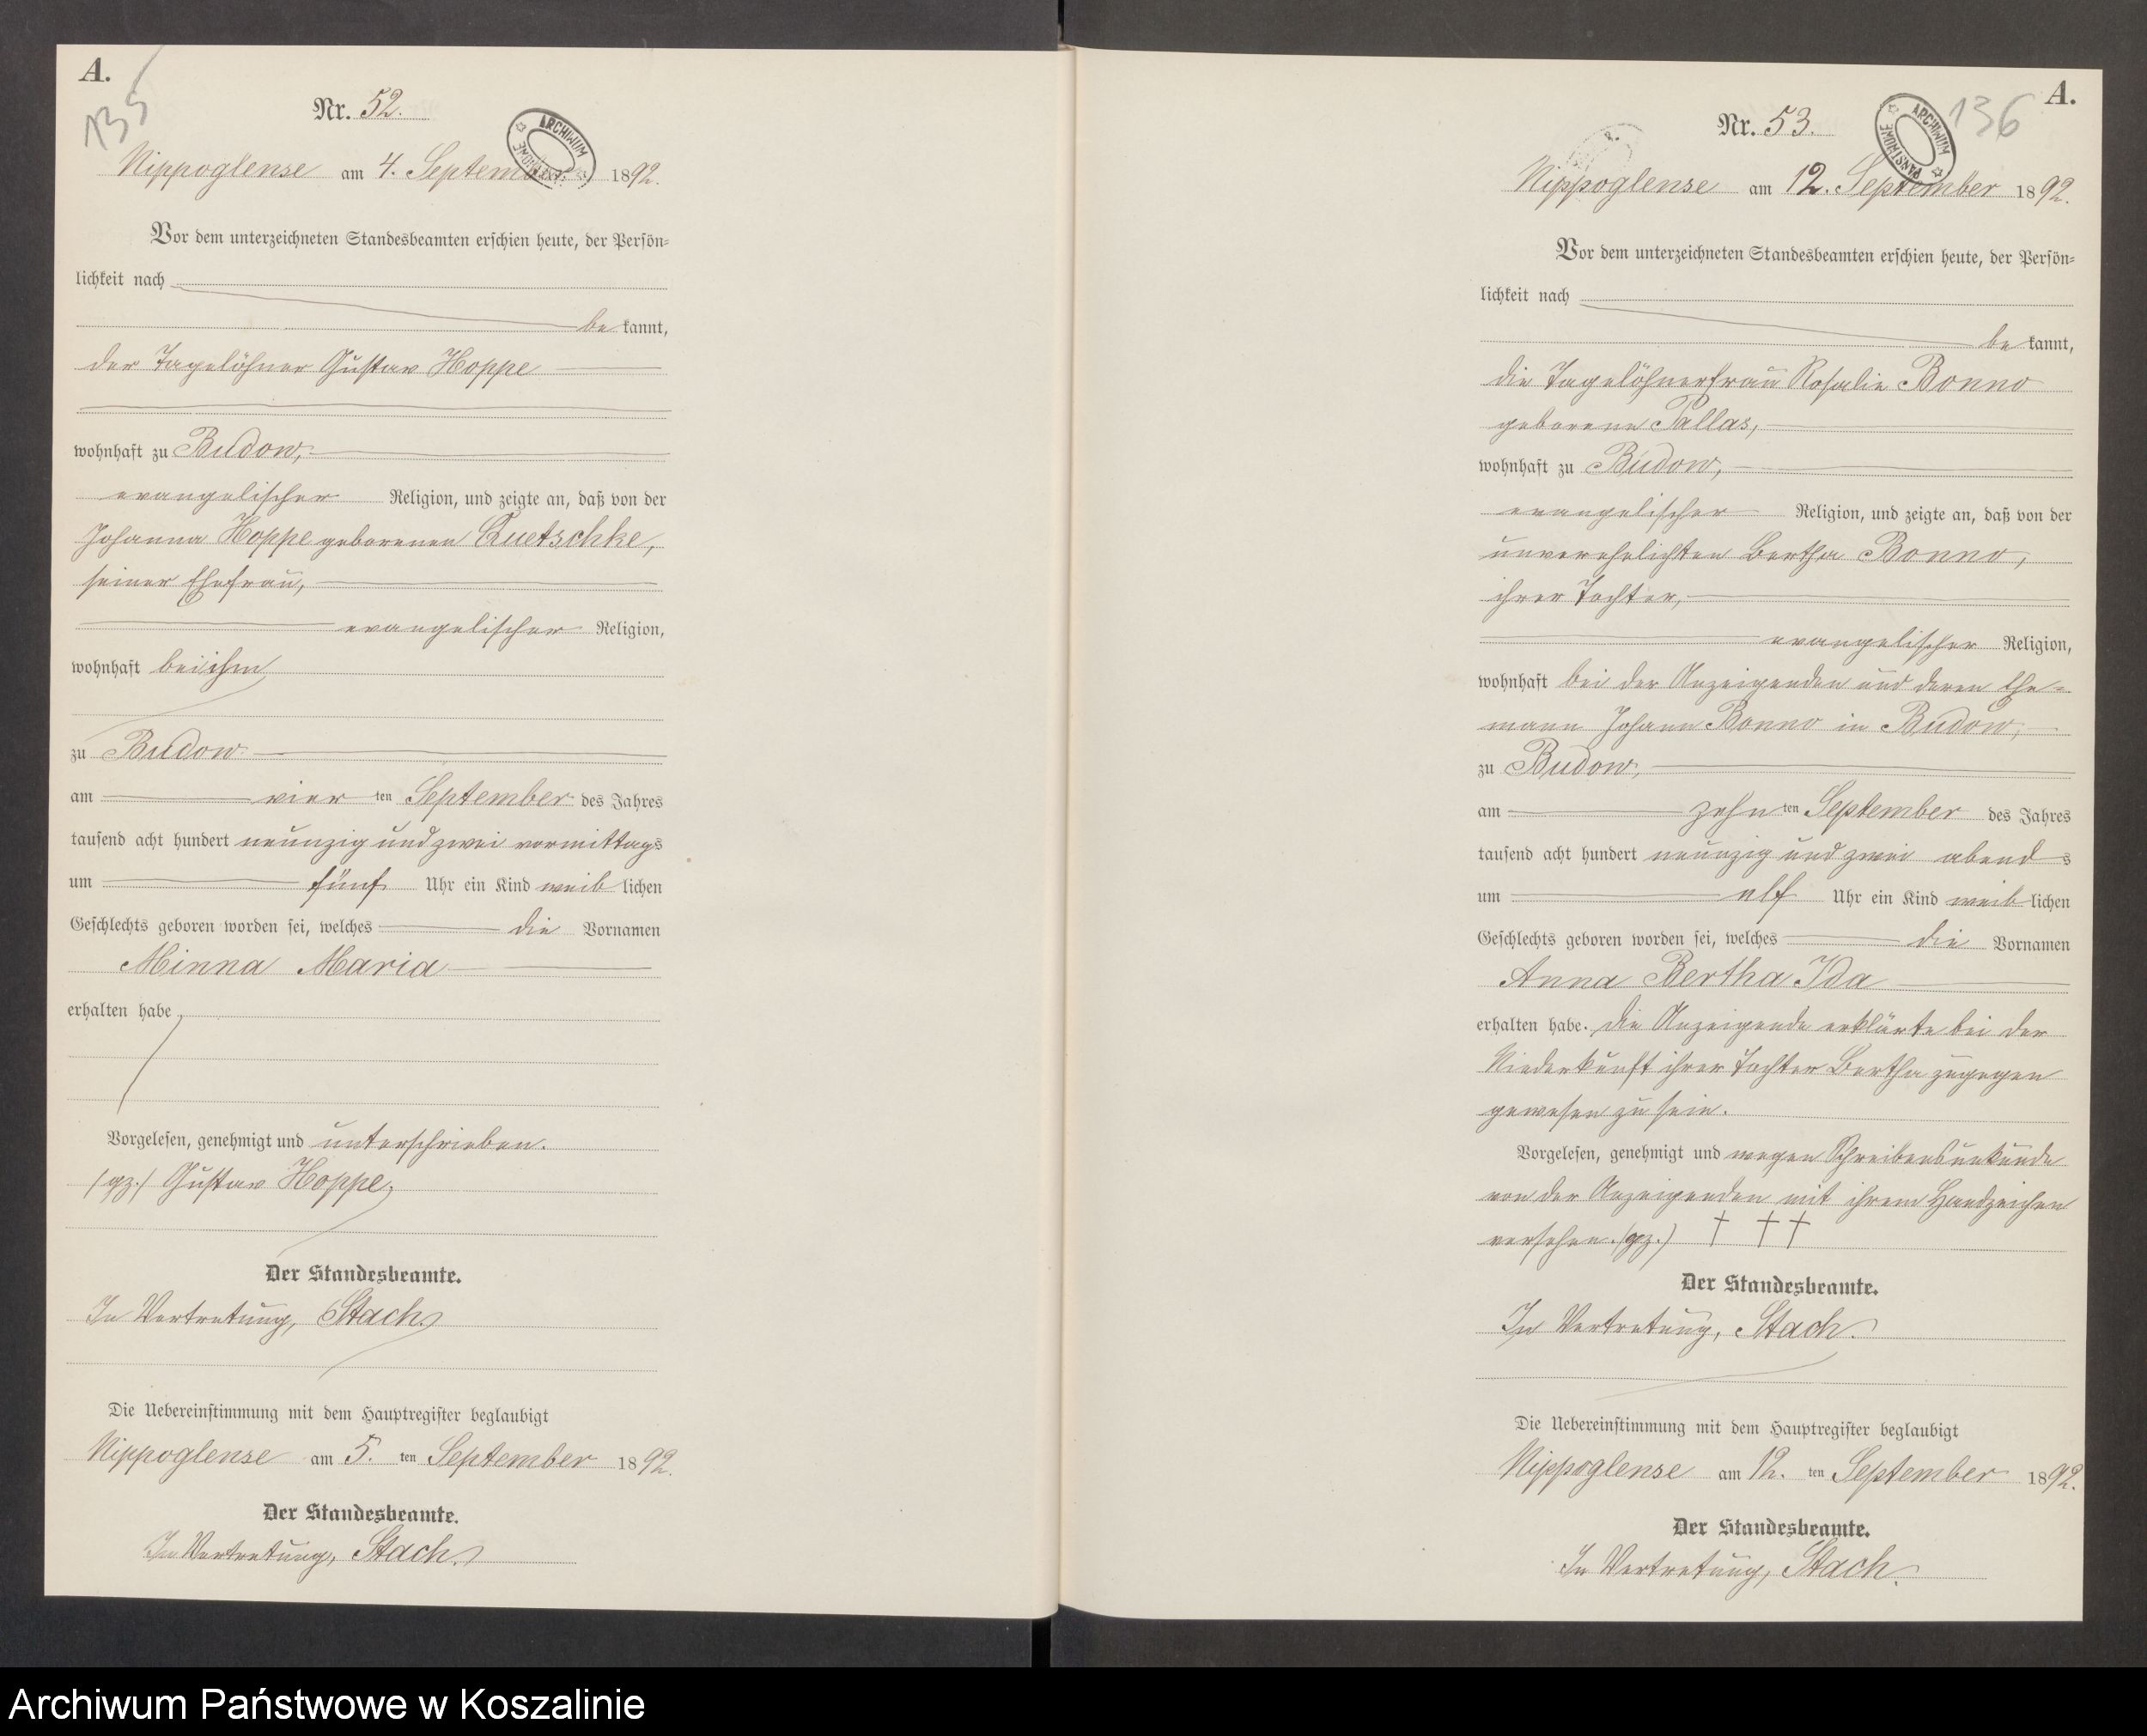 A.
135
Nr. 52.
ARCHIWUM
Nippoglense am 4. September 1892.
Vor dem unterzeichneten Standesbeamten erschien heute, der Persön=
lichkeit nach
be kannt,
der Tagelöhner Gustav Hoppe
wohnhaft zu Budow,
evangelischer Religion, und zeigte an, daß von der
Johanna Hoppe geborenen Quetschke,
seiner Ehefrau,
evangelischer Religion,
wohnhaft bei ihm
zu Budow
am vier ten September des Jahres
tausend acht hundert neunzig und zwei vormittags
um fünf Uhr ein Kind weib lichen
Geschlechts geboren worden sei, welches die Vornamen
Minna Maria
erhalten habe
Vorgelesen, genehmigt und unterschrieben.
(gz.) Gustav Hoppe,
Der Standesbeamte.
In Vertretung, Stach.
Die Uebereinstimmung mit dem Hauptregister beglaubigt
Nippoglense am 5. ten September 1892.
Der Standesbeamte.
In Vertretung, Stach.
A.
136
Nr. 53.
ARCHIWUM PAŃSTWOWE
Nippoglense am 12. September 1892.
Vor dem unterzeichneten Standesbeamten erschien heute, der Persön=
lichkeit nach
be kannt,
die Tagelöhnerfrau Rosalie Bonno
geborene Pallas,
wohnhaft zu Budow,
evangelischer Religion, und zeigte an, daß von der
unverehelichten Bertha Bonno,
ihrer Tochter,
evangelischer Religion,
wohnhaft bei der Anzeigenden und deren Ehe=
mann Johann Bonno in Budow,
zu Budow,
am zehn ten September des Jahres
tausend acht hundert neunzig und zwei abend s
um elf Uhr ein Kind weib lichen
Geschlechts geboren worden sei, welches die Vornamen
Anna Bertha Ida
erhalten habe. Die Anzeigende erklärte bei der
Niederkunft ihrer Tochter Bertha zugegen
gewesen zu sein.
Vorgelesen, genehmigt und wegen Schreibensunkunde
von der Anzeigenden mit ihrem Handzeichen
versehen. (gz.) † † †
Der Standesbeamte.
In Vertretung, Stach.
Die Uebereinstimmung mit dem Hauptregister beglaubigt
Nippoglense am 12. ten September 1892.
Der Standesbeamte.
In Vertretung, Stach.
Archiwum Państwowe w Koszalinie